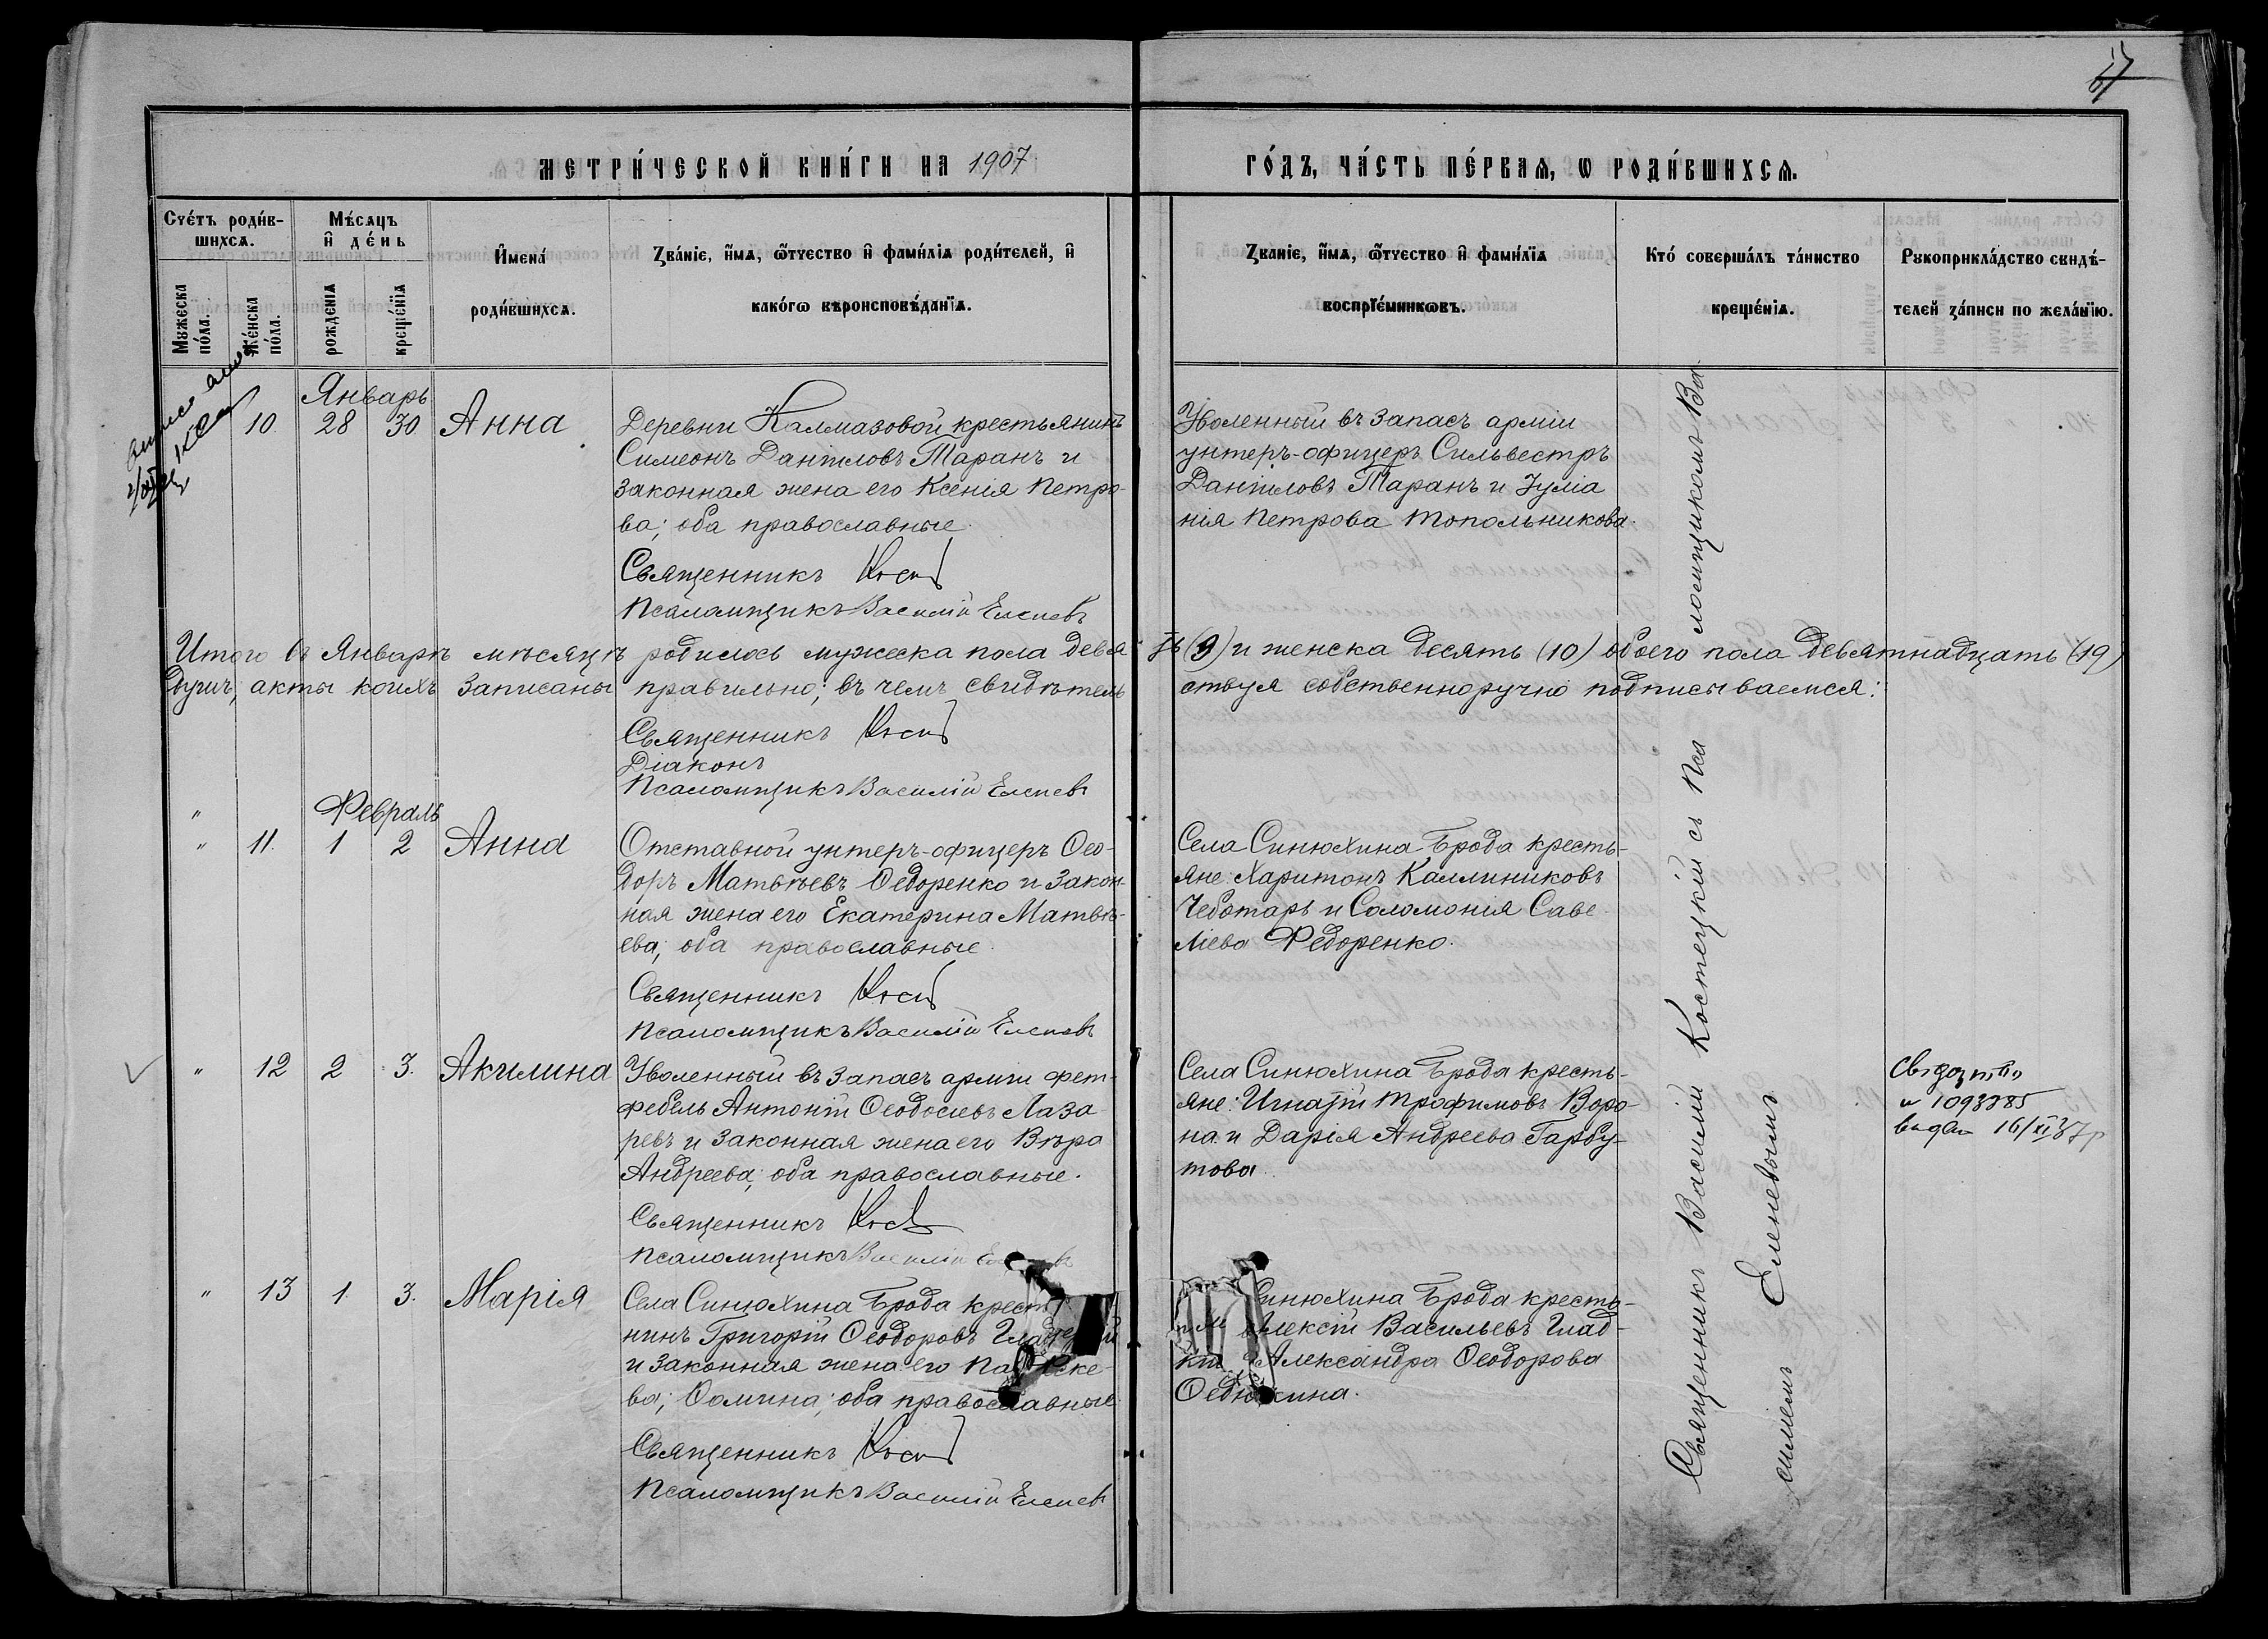 МЕТРИ́ЧЕСКОЙ КНИ́ГИ НА 1907
ГО́ДЪ, ЧА́СТЬ ПЕ́РВАѦ, Ѡ РОДИ́ВШИХСѦ.
Сче́тъ роди́в-
шихсѧ.
Мꙋжеска по́ла.
Же́нска по́ла.
Мѣ́сѧцъ
и҆ де́нь
рожденїѧ
креще́нїѧ
И҆мена́
роди́вшихсѧ.
Зва́нїе, и҆́мѧ, ѻ҆́тчество и҆ фами́лїѧ роди́телей, и҆
како́гѡ вѣроисповѣ́данїѧ.
Зва́нїе, и҆́мѧ, ѻ҆́тчество и҆ фами́лїѧ
воспрїе́мникѡвъ.
Кто́ соверша́лъ та́инство
креще́нїѧ.
Рꙋкоприкла́дство свидѣ́-
телей за́писи по жела́нїю.
Январь
10 28 30 Анна
Деревни Калмазовой крестьянинъ
Симеонъ Даніиловъ Таранъ и
законная жена его Ксенія Петро-
ва; оба православные.
Священникъ
Псаломщикъ Василій Еленевъ
Уволенный въ запасъ арміи
унтеръ-офицеръ Сильвестръ
Даніиловъ Таранъ и Іуліа
нія Петрова Топольникова.
Итого въ Январѣ мѣсяцѣ родилось мужеска пола девя ть (9) и женска десять (10) обоего пола девятнадцать (19)
душъ, акты коихъ записаны правильно; въ чемъ свидѣтель ствуя собственноручно подписываемся:
Священникъ
Діаконъ
Псаломщикъ Василій Еленевъ
"
Февраль
" 11. 1 2 Анна
Отставной унтеръ-офицеръ Ѳео-
доръ Матвѣевъ Ѳедоренко и закон-
ная жена его Екатерина Матвѣ-
ева; оба православные.
Священникъ
Псаломщикъ Василій Еленевъ
Села Синюхина Брода кресть-
яне: Харитонъ Каллиниковъ
Чеботарь и Соломонія Саве-
ліева Федоренко.
" 12 2 3. Акилина
Уволенный въ запасъ арміи фет-
фебель Антоній Ѳеодосіевъ Лаза
ревъ и законная жена его Вѣра
Андреева; оба православные.
Священникъ
Псаломщикъ Василій
Села Синюхина Брода кресть-
яне: Игнатій Трофимовъ Воро-
на и Дарія Андреева Гарбу-
това.
" 13 1. 3. Марія
Села Синюхина Брода крест
нинъ Григорій Ѳеодоровъ
и законная жена его
ва; Ѳомина; оба православные
Священникъ
Псаломщикъ Василій Еленевъ
Синюхина Брода кресть-
Алексій Васильевъ Глад-
кій Александра Ѳеодорова
Священникъ Василій Костецкій съ Пса ломщикомъ Ва
силіемъ Еленевымъ